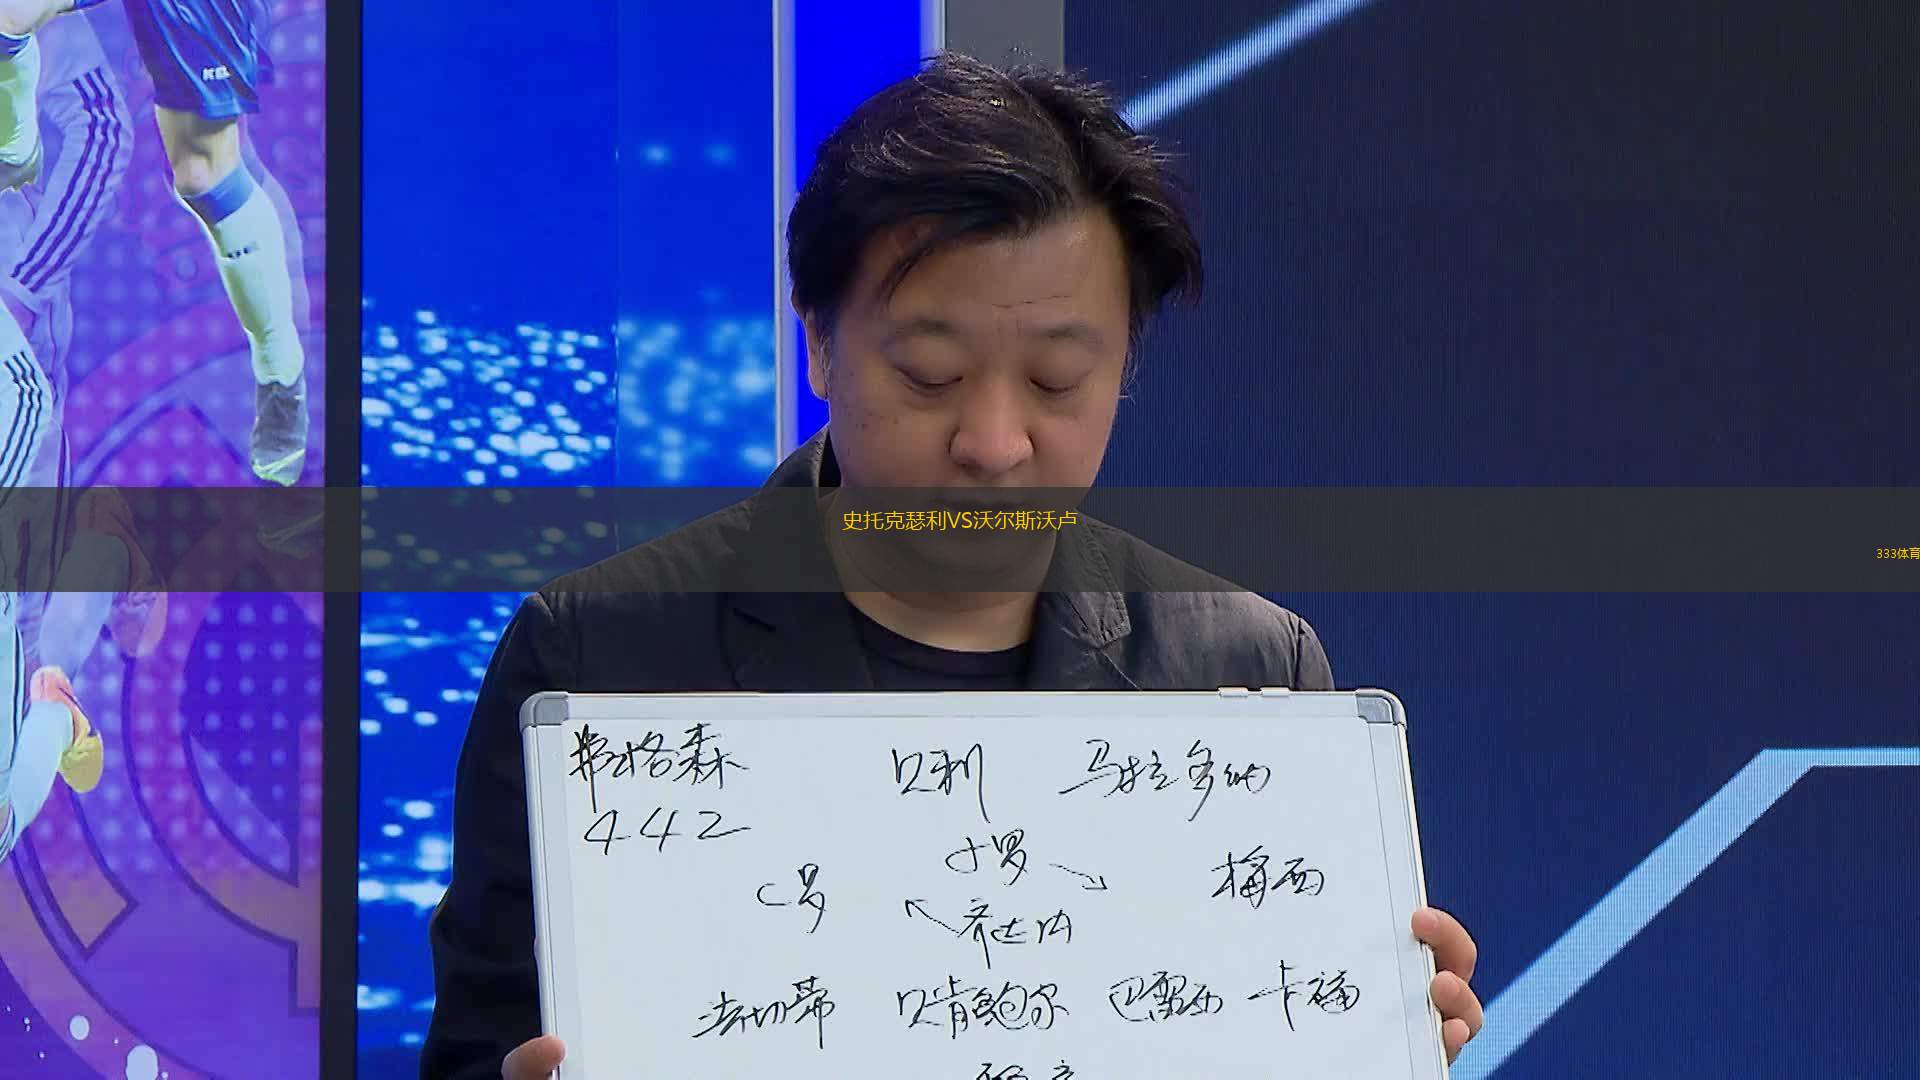 史托克瑟利VS沃尔斯沃卢
333体育
弗格森 贝利 马拉多纳
442
小罗
C罗 梅西
齐达内
法切蒂 贝肯鲍尔 巴雷西 卡福